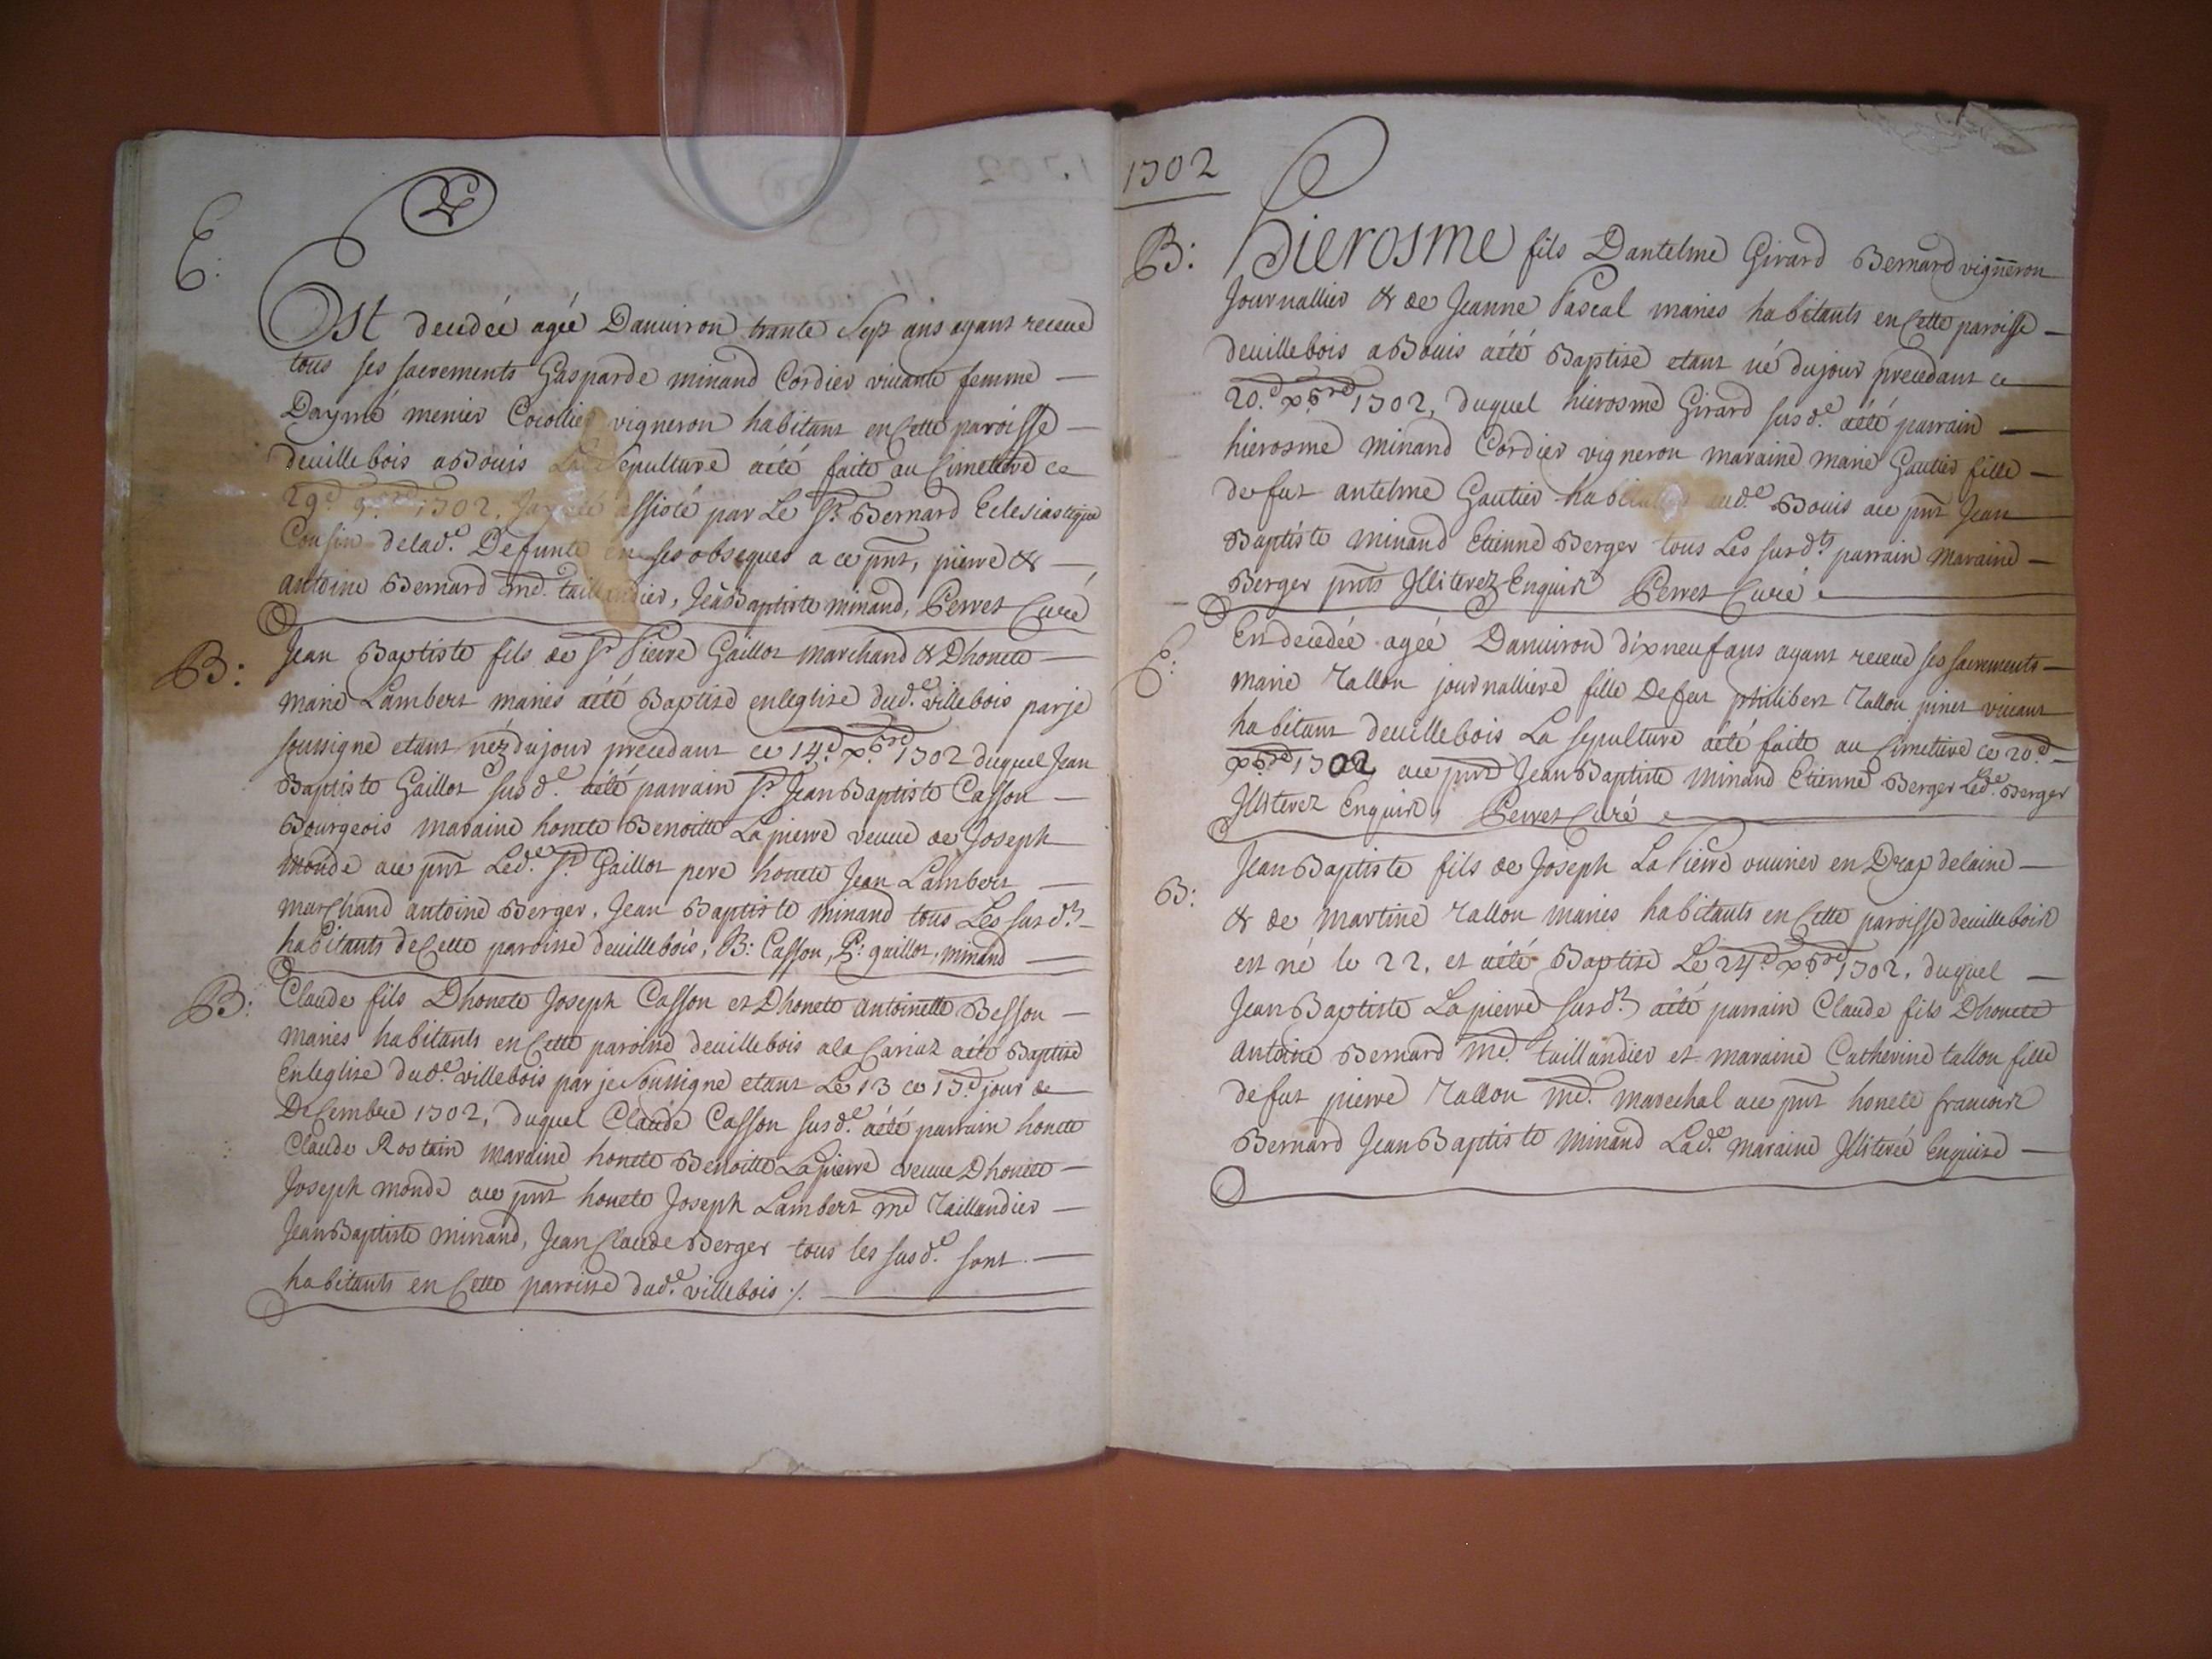 E:
Est decedée agée Danuiron trante Sept ans ayant receue
tous ses sacrements Gasparde minand Cordier viuante femme
Daymé menier Corollier vigneron habitant en Cette paroisse
deuillebois a Bouis La Sepulture aété faite au Cimetiere ce
29e 9bre 1702. assisté par Le Sr. Bernard Eclesiastique
Cousin delade. Defunte en ses obseques a ce pnt, pierre &
antoine Bernard md. taillandier, Jeã Baptiste minand, Perret Curé
B:
Jean Baptiste fils de Sr Pierre Gaillot marchand & Dhonete
marie Lambert maries aété Baptisé enleglise dude. villebois parje
soussigne etant néz dujour precedant ce 14e xbre 1702 duquel Jean
Baptiste Gaillot susde. aété parrain Sr Jean Baptiste Casson
Bourgeois maraine honete Benoitte Lapierre veuue de Joseph
monde ace pnt Lede. Sr Gaillot pere honete Jean Lambert
marchand antoine Berger, Jean Baptiste minand tous Les susdts
habitants de Cette paroisse deuillebois, B: Casson, P: gaillot, minand
B:
Claude fils Dhonete Joseph Casson et Dhonete antoinette Besson
maries habitants en Cette paroisse deuillebois ala Cariaz aété Baptisé
Enleglise dude. villebois par je Soussigne etant Le 13 ce 17e jour de
Decembre 1702, duquel Claude Casson susde. aété parrain honete
Claude Rostain maraine honete Benoitte Lapierre veuue Dhonete
Joseph monde ace pnt honete Joseph Lambert md Taillandier
Jean Baptiste minand, Jean Claude Berger tous les susde. sont
habitants en Cette paroisse dude. villebois ./.
1702
B:
Hierosme fils Dantelme Girard Bernard vigneron
Journallier & de Jeanne Pascal maries habitants en Cette paroisse
deuillebois a Bouis aété Baptise etant né dujour precedant ce
20.e xbre 1702, duquel hierosme Girard susde. aété parrain
hierosme minand Cordier vigneron maraine marie Gautier fille
defut antelme Gautier aude Bouis ace pnt Jean
Baptiste minand Etienne Berger tous Les susdts parrain maraine
Berger pnts Jlliterez Enquis Perret Curé
E:
Est decedée agée Danuiron dixneuf ans ayant receue ses sacrements
marie Tallon journalliere fille Defut philibert Tallon pinet viuant
habitant deuillebois La sepulture aété faite au Cimetiere ce 20.e
xbre 1702, ace pnt Jean Baptiste minand Etienne Berger Lede. Berger
Jlliterez Enquis, Perret Curé
B:
Jean Baptiste fils de Joseph La Pierre ouurier en Drap delaine
& de martine Tallon maries habitants en Cette paroisse deuillebois
est né le 22, et aété Baptisé Le 24e xbre 1702, duquel
Jean Baptiste Lapierre susdt aété parrain Claude fils Dhonete
antoine Bernard md. taillandier et maraine Catherine tallon fille
defut pierre Tallon md. marechal ace pnt honete francois
Bernard Jean Baptiste minand Lade. maraine Jlliterée Enquise